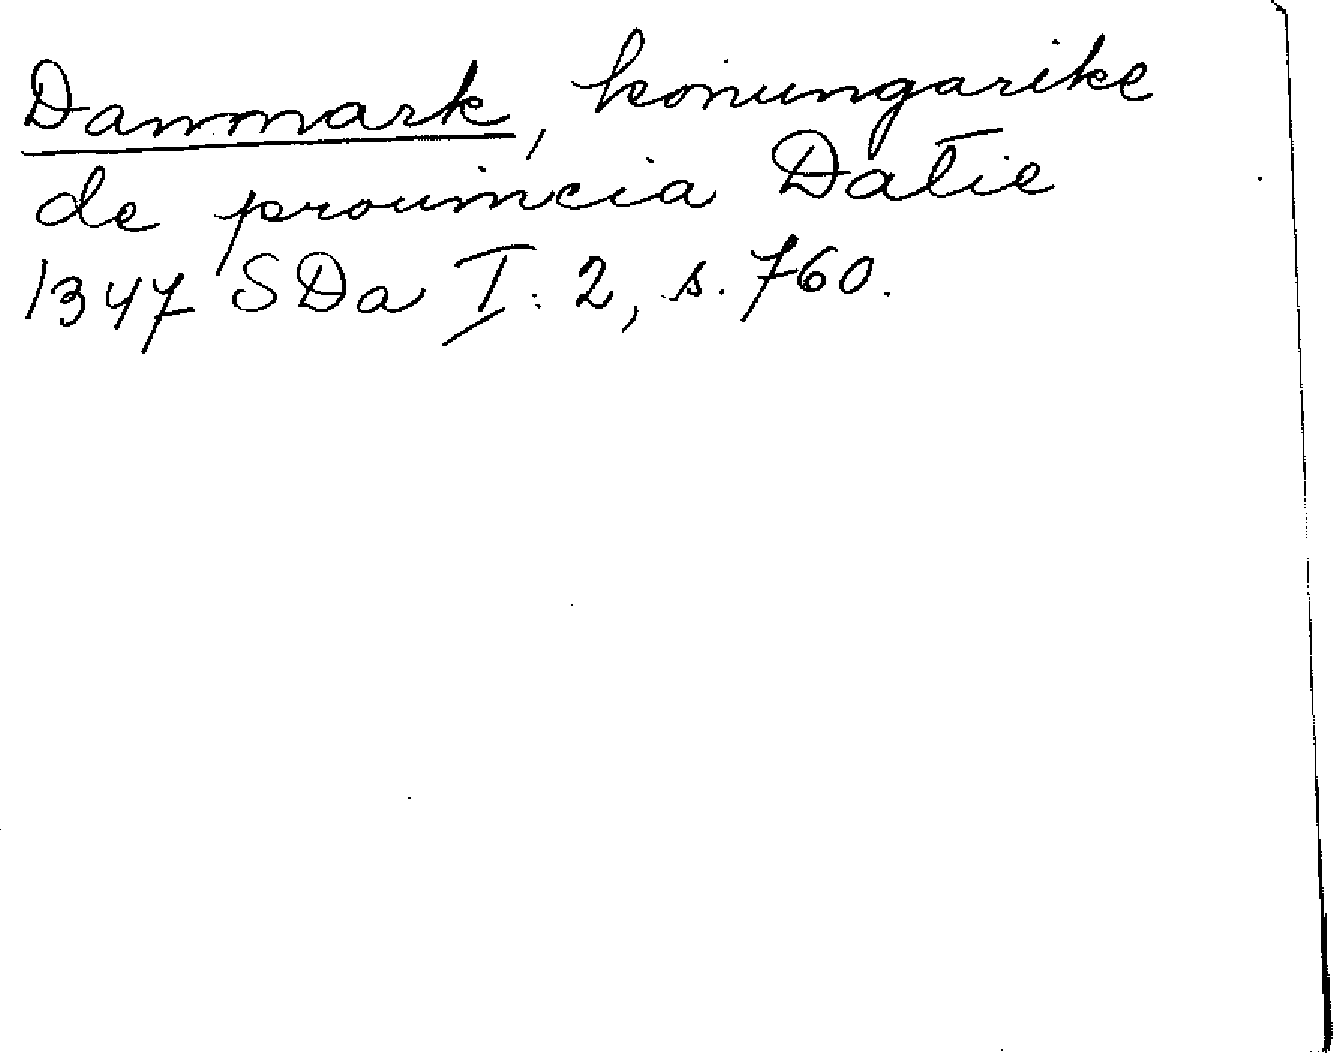 Danmark, konungarike
de prouincia Datie
1347 SDa I: 2, s. 760.